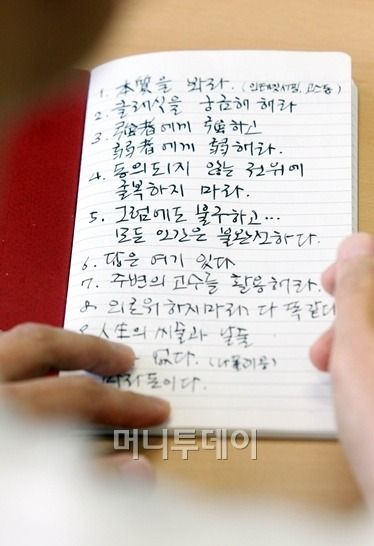 1. 本質을 봐라. (인테넷서핑, 고스톱)
2. 클래식을 궁금해 해라
3. 强者에게 강하고
弱者에게 弱해라.
4. 동의되지 않는 권위에
굴복하지 마라.
5. 그럼에도 불구하고...
모든 인간은 불완전하다.
6. 답은 여기 있다
7. 주변의 고수를 활용해라.
8 의로워하지마라, 다 똑같다
9 人生의 씨줄과 날들
없다. (나폴레옹)
이다.
머니투데이